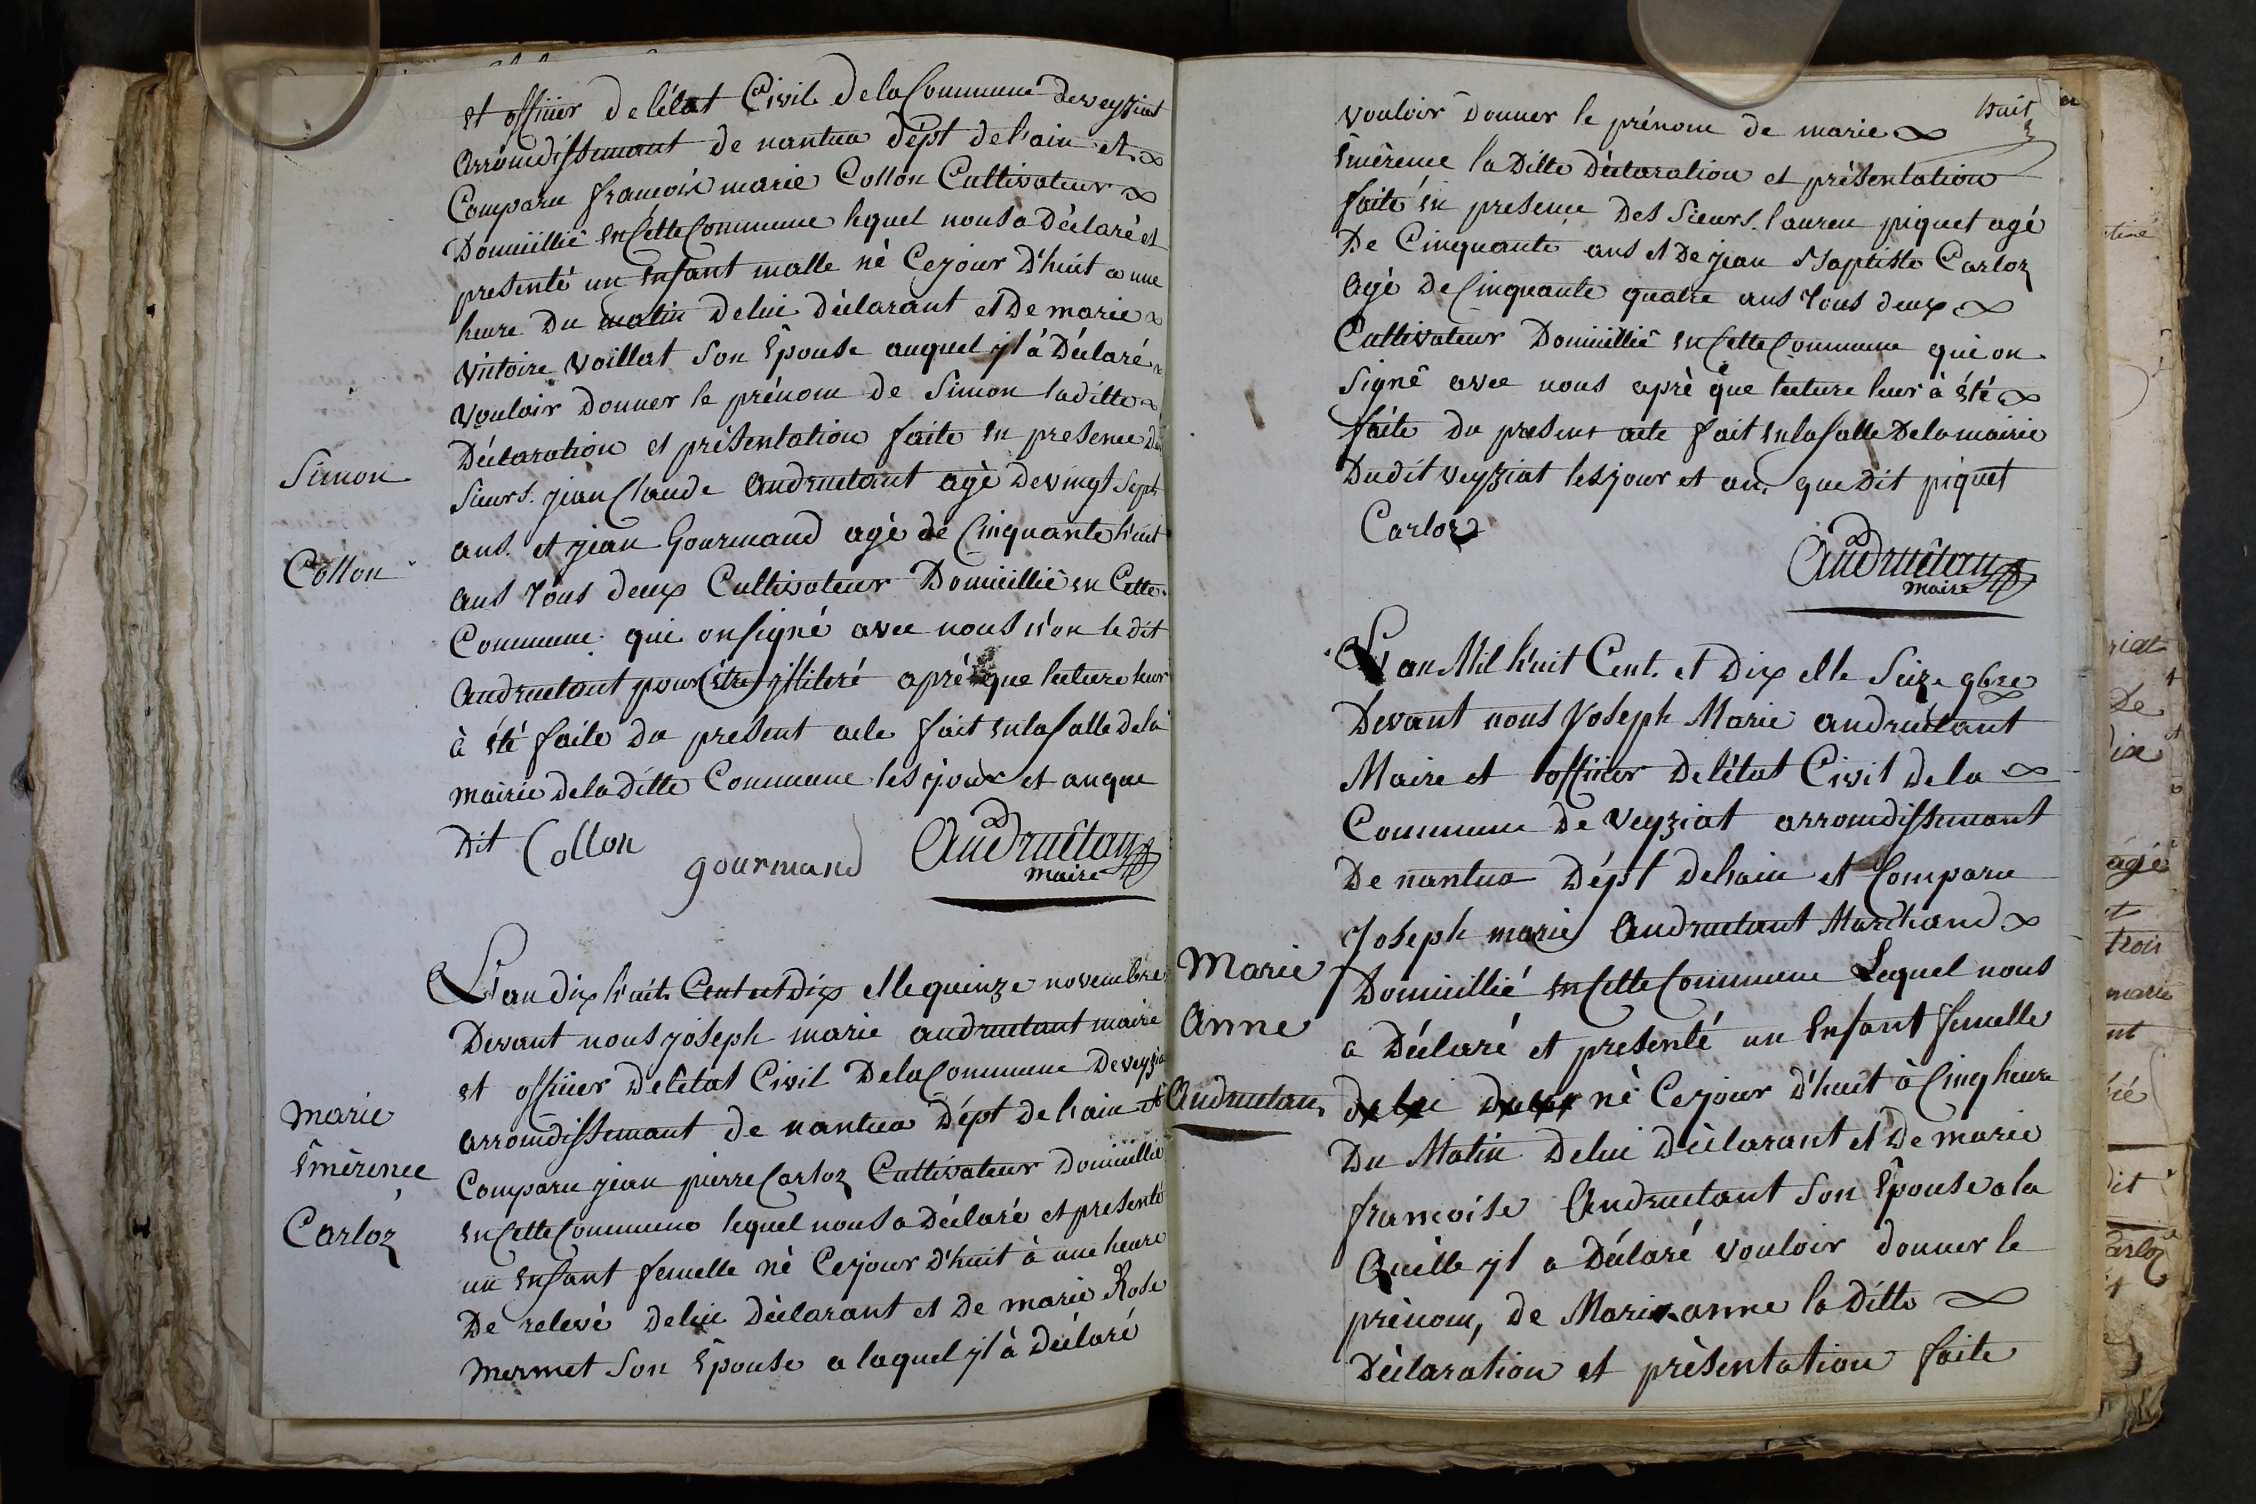 et officier de létat Civil de la Commune de veyziat
arromdissemant de nantua dépt de l'ain et
Comparu francois marie Collon Cultivateur
Domicillié en Cette Commune lequel nous a Déclaré et
presenté un enfant malle né Cejour d'huit a une
heure Du matin de lui Déclarant et De marie
victoire Voillat Son épouse auquel yl à Déclaré
vouloir donner le prénom de Simon la ditte
Déclaration et présentation faite en presence Des
Simon
Sieurs. jean Claude Andruetant agé de vingt Sept
ans. et jean Gourmand agé de Cinquante huit
Collon
ans tous deux Cultivateur Domicillié en Cette
Commune qui on Signé avec nous n'on le dit
Andruetant pour être ylliteré aprè que lecture leur
à été faite du présent acte fait en la Salle de la
mairie de la ditte Commune les jour et an que
Dit Collon
gourmand
Andruétan
maire
L'an dix huit Cent et Dix et le quinze novembre
Devant nous joseph marie andruetant maire
et officier de létat Civil De la Commune De veyzia
marie
arromdissemant de nantua dépt de l'ain et
émérence
Comparu jean pierre Carloz Cultivateur Domicillié
Carloz
en Cette Commune lequel nous a Déclaré et presenté
un enfant femelle né Cejour d'huit à une heure
De relevé de lui Déclarant et De marie Rose
Mermet Son épouse a laquel yl à Déclaré
huit
vouloir donner le prénom de marie
émérence la Ditte Déclaration et présentation
faite en presence Des Sieurs. lauren piquet agé
De Cinquante ans et De jean Baptiste Carloz
agé de Cinquante quatre ans tous deux
Cultivateur Domicillié en Cette Commune qui on
Signé avec nous aprè que lecture leur à été
faite du present acte fait en la Salle De la mairie
Dudit veyziat les jour et an que Dit piquet
Carloz
Andruétan
maire
L'an Mil huit Cent. et Dix et le Seize 9bre
Devant nous Joseph Marie andruetant
Maire et officier De létat Civil de la
Commune De veyziat arromdissemant
De nantua Dépt De l'ain et Comparu
Joseph marie Andruetant Marchand
Marie
Domicillié en Cette Commune Lequel nous
Anne
a Déclaré et presenté un Enfant femelle
Andruetan
de lui né Cejour d'huit à Cinq heure
Du Matin De lui Déclarant et De marie
francoise Andruetant Son épouse a la
Quelle yl a Déclaré vouloir donner le
prénom, de Marie anne la Ditte
Déclaration et présentation faite